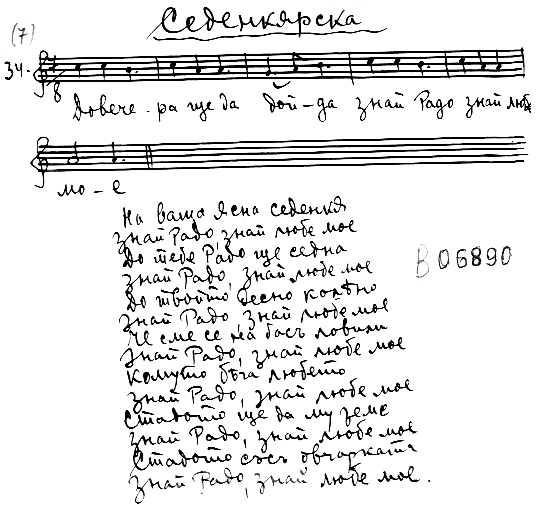 Седенкярска
(7)
34.
Довече - ра ще да дой - да знай Радо знай любе
мо - е
На ваща ясна седенкя
знай Радо, знай любе мое
До тебе Радо ще седна
знай Радо, знай любе мое
До твойто десно колѣно
знай Радо знай любе мое
Че сме се на басъ ловили
знай Радо, знай любе мое
Комуто бѣга любето
знай Радо, знай любе мое
Стадото ще да му земе
знай Радо, знай любе мое
Стадото съсъ овчарката
знай Радо, знай любе мое.
B 06890